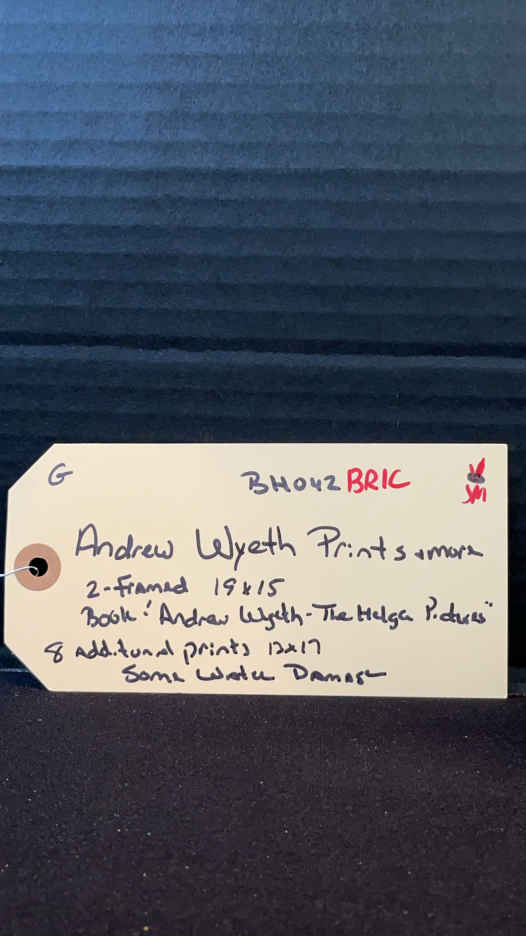 G
BH042 BRIC
Andrew Wyeth Prints + more
2-Framed 19x15
Book: "Andrew Wyeth - The Helga Pictures"
8 additional prints 13x17
Some Water Damage